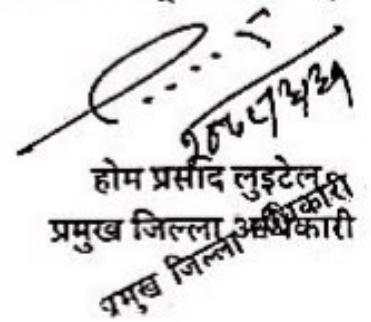 होम प्रसाद लुइटेल
प्रमुख जिल्ला अधिकारी
प्रमुख जिल्ला अधिकारी